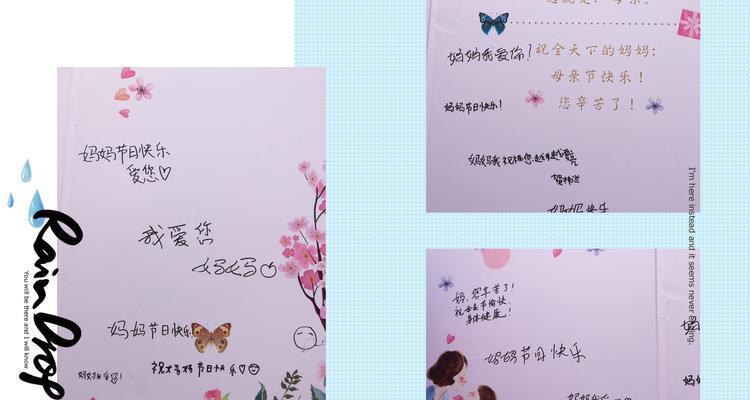 妈妈节日快乐
爱您♡
我爱您
妈妈
妈妈节日快乐
祝妈妈节日快乐♡
妈妈我爱您!
Rain Drop
You will be there and I will know
妈妈我爱你!
祝全天下的妈妈:
母亲节快乐!
妈妈节日快乐!
您辛苦了!
妈妈我祝福您越来越漂亮
妈妈快乐
I'm here instead and it seems never
妈,您辛苦了!
祝母亲节愉快,
身体健康!
妈妈节日快乐
妈妈我爱